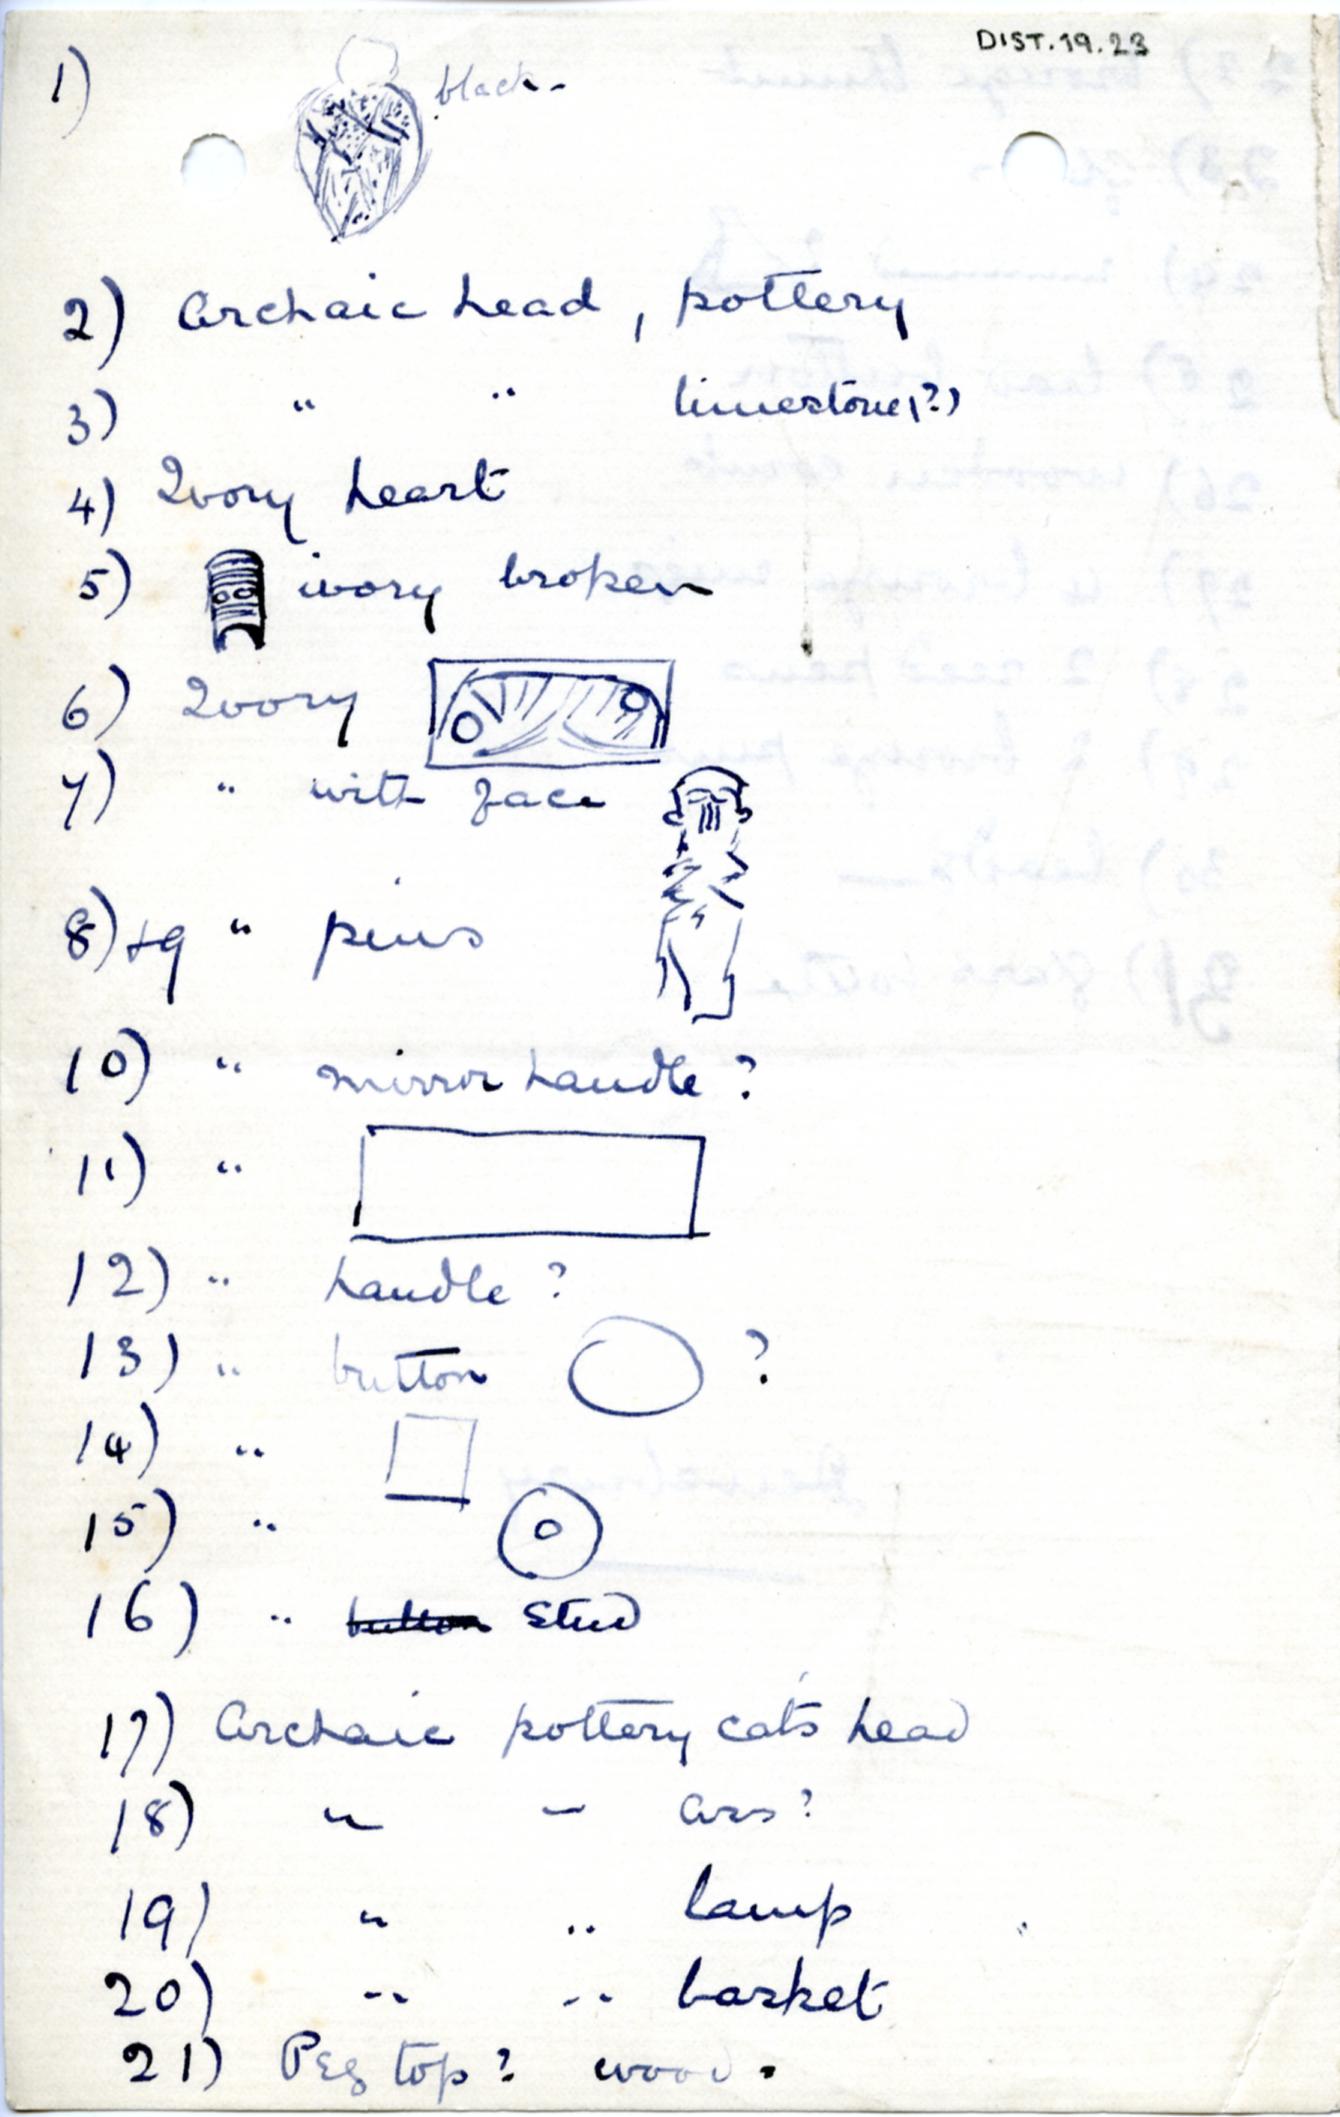 DIST.19.23
1) black.
2) Archaic head, pottery
3) " " limestone(?)
4) Ivory heart
5) ivory broken
6) Ivory
7) " with face
8)+9 " pins
10) " mirror handle?
11) "
12) " handle?
13) " button ?
14) "
15) "
16) " button stud
17) Archaic pottery cat's head
18) " "
19) " " lamp
20) " " basket
21) Peg top? wood.